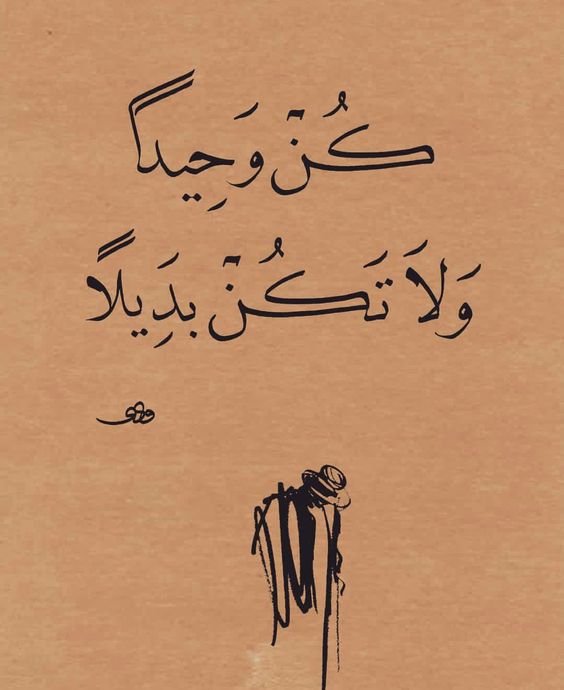 كُنْ وَحِيداً
وَلاَ تَكُنْ بَدِيلاً